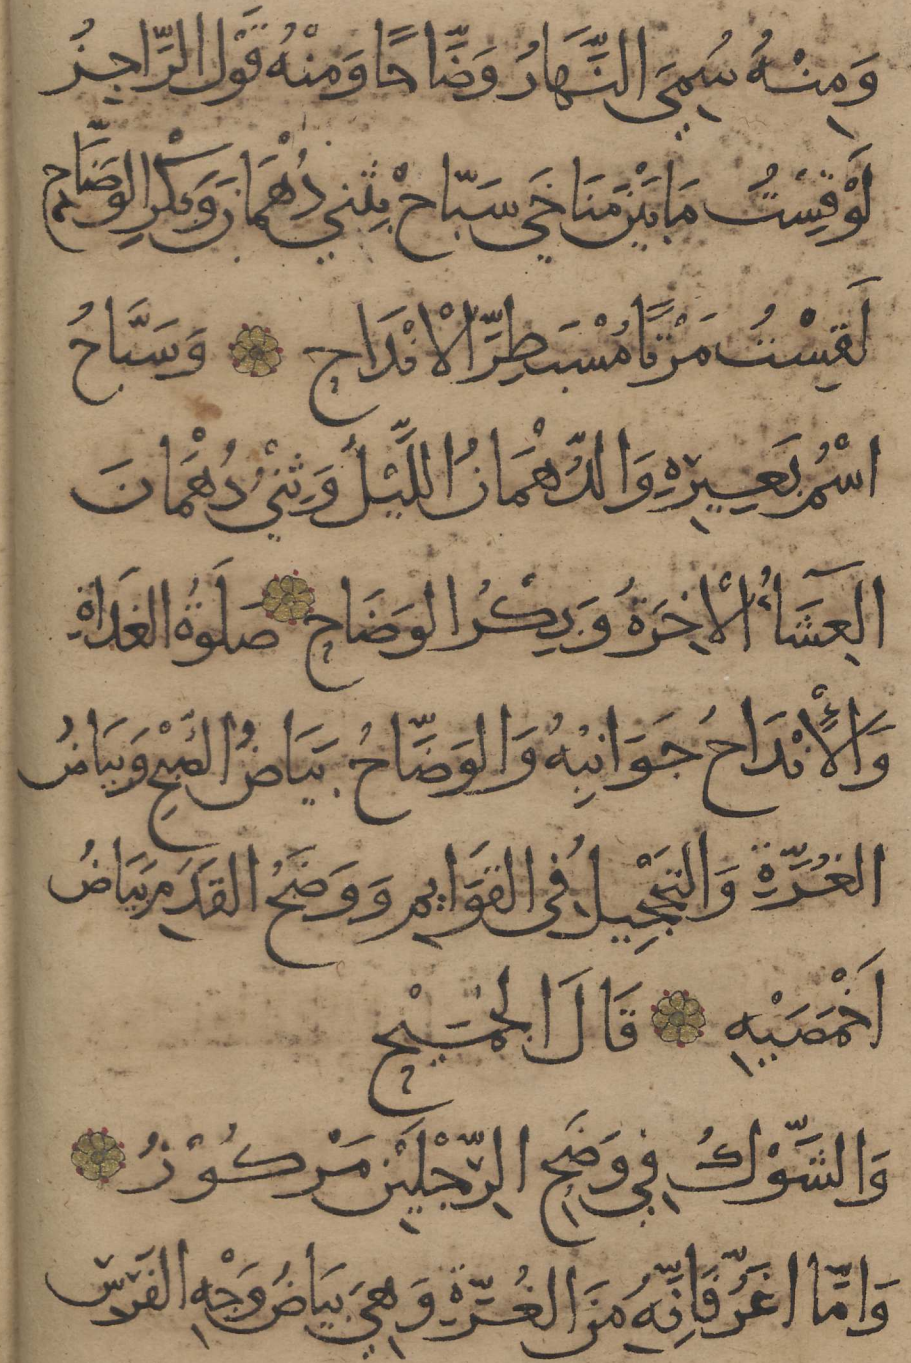 وَمِنْهُ سُمِيَ النَّهَارُ وَضَّاحًا وَمِنْهُ قَوْلُ الرَّاجِزُ
لَوْ قِسْتُ مَا بَيْنَ مَنَاخَي سَبّاحْ بِثني دُهْمَانَ وَبَكْرِ الوَضَّاحِ
لَقِسْتُ مَرْتًا مُسْبَطِرَّ الْانْدَاحِ وَسَبَّاحُ
اسْمُ بَعِيرِهِ وَالدُّهْمَانُ اللَّيْلُ وَثِنْيُ دُهْمَانَ
العِشَآءُ الْاخِرَةُ وَبِكْرُ الوَضَاحِ صَلَوةُ الغَدَاةِ
وَالأَنْدَاحُ جَوَانِبُهُ وَالوَضَّاحُ بَيَاضُ الصُبْحِ وَبَيَاضُ
الغُرَّةِ وَالتَحْجِيلُ فِي القَوَايِمِ وَوَضَحُ القَدَمِ بَيَاضُ
اَخْمَصَيْهِ قَالَ الجُمَيْحُ
وَالشَّوْكُ فِي وَضَحِ الرِّجْلَيْنِ مَرْكُوْزُ
وَامَّا اغَرُّ فَاِنَّهُ مَنَ الغُرَّةِ وَهِيَ بَيَاضُ وَجْهِ الفَرَسِ